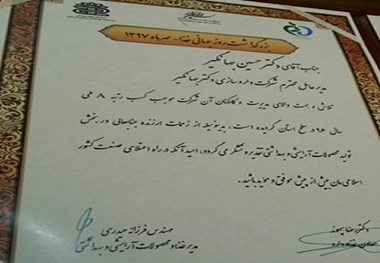 بزرگداشت روز ملی غذا - مهرماه ۱۳۹۷
جناب آقای دکتر حسین جهانگیر
مدیر عامل محترم شرکت داروسازی دکتر جهانگیر
تلاش و همت والای مدیریت و کارکنان آن شرکت موجب کسب رتبه
سال ۹۶ در سطح استان گردیده است، بدینوسیله از زحمات ارزنده جنابعالی در بخش
تولید محصولات آرایشی و بهداشتی تقدیر و تشکر می گردد، امید آنکه در راه اعتلای صنعت کشور
اسلامی مان بیش از پیش موفق و موید باشید.
مهندس فرزانه حیدری
مدیر غذا و محصولات آرایشی و بهداشتی
دکتر رضا